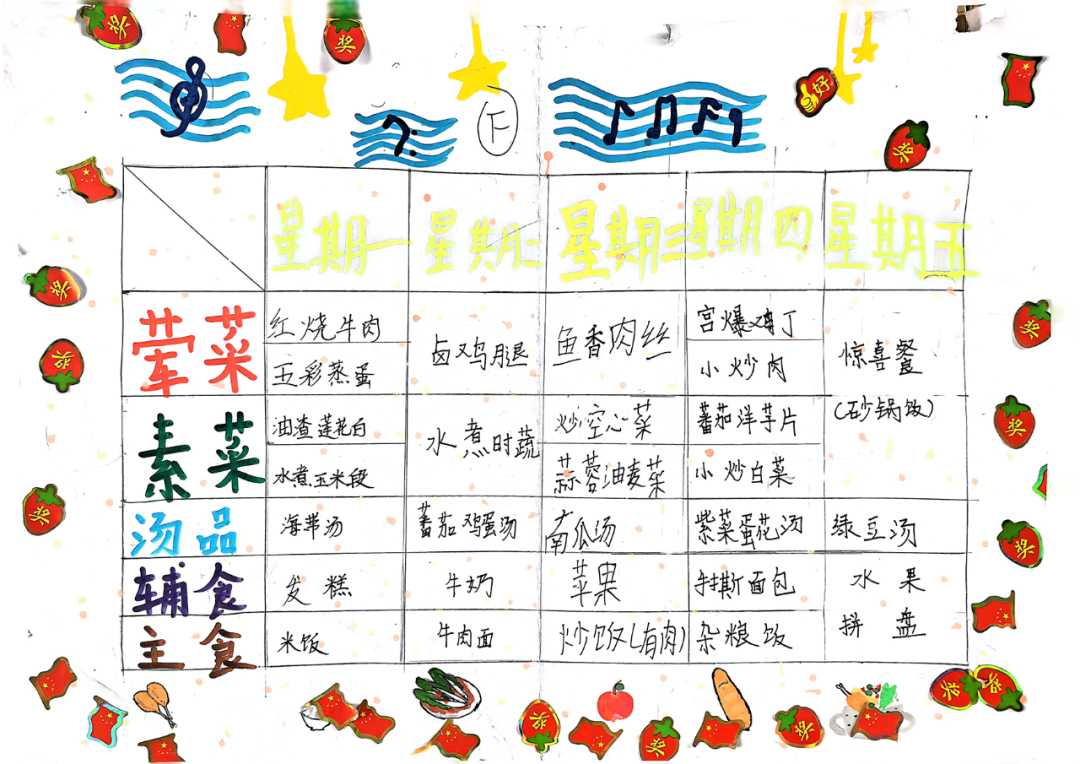 下
星期一 星期二 星期三 星期四 星期五
荤菜
红烧牛肉
五彩蒸蛋
卤鸡腿
鱼香肉丝
宫爆鸡丁
小炒肉
惊喜餐
(砂锅饭)
素菜
油渣莲花白
水煮玉米段
水煮时蔬
炒空心菜
蒜蓉油麦菜
蕃茄洋芋片
小炒白菜
汤品
海带汤
蕃茄鸡蛋汤
南瓜汤
紫菜蛋花汤
绿豆汤
辅食
发糕
牛奶
苹果
手撕面包
水果
拼盘
主食
米饭
牛肉面
炒饭(有肉)
杂粮饭
奖
奖
好
奖
奖
奖
奖
奖
奖
奖
奖
奖
奖
奖
奖
奖